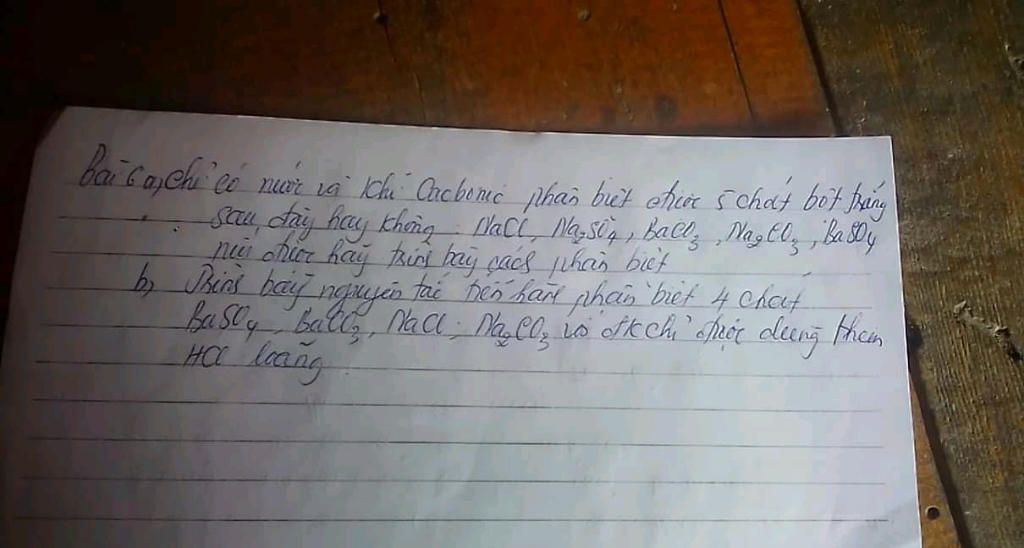 Bài 6 a, chỉ có nước và khí Cacbonic phân biệt được 5 chất bột trắng
sau đây hay không: NaCl, Na₂SO₄, BaCO₃, Na₂CO₃, BaSO₄
nếu được hãy trình bày cách phân biệt
b, Trình bày nguyên tắc tiến hành phân biệt 4 chất
BaSO₄, BaCO₃, NaCl, Na₂CO₃ với đk chỉ được dùng thêm
HCl loãng